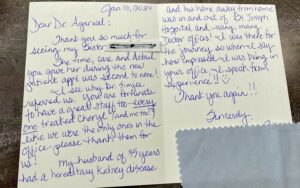 Jan 10, 2024
Dear Dr. Agarwal:
Thank you so much for
seeing my Sister
The time, care and detail
you gave her during the one
minute appt was second to none!
I see why Dr. Singer
referred us. You are fortunate
to have a great staff too - every
one treated Cheryl (and me too!)
like we were the only ones in the
office - please thank them for
us!
My husband of 35 years
had a hereditary Kidney disease
and his home away from home
was in and out of St. Joseph
Hospital and many, many
Doctor offices! I was there for
the journey, so when I say
how impressed I was being in
your office - I speak from
experience!!
Thank you again!!
Sincerely,